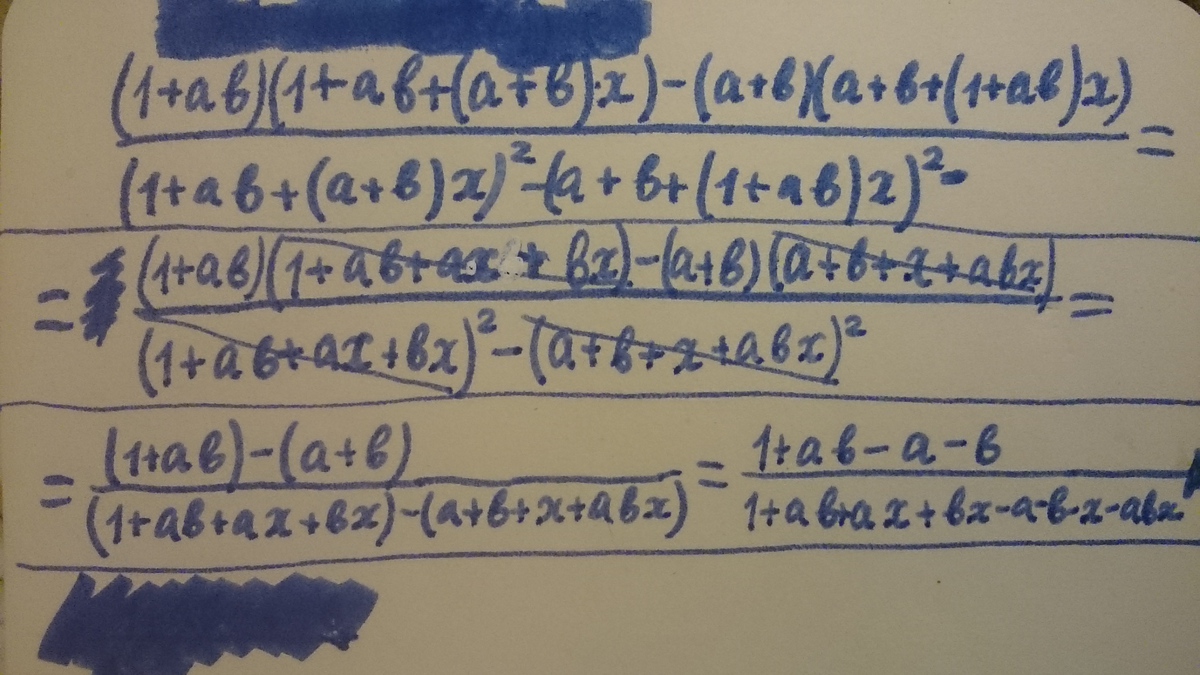 (1+ab)(1+ab+(a+b)·x)-(a+b)(a+b+(1+ab)x) =
(1+ab+(a+b)x)²-(a+b+(1+ab)x)²-
= (1+ab)(1+ab+ax+bx)-(a+b)(a+b+x+abx) =
(1+ab+ax+bx)²-(a+b+x+abx)²
= (1+ab)-(a+b) = 1+ab-a-b
(1+ab+ax+bx)-(a+b+x+abx) 1+ab+ax+bx-a-b-x-abx